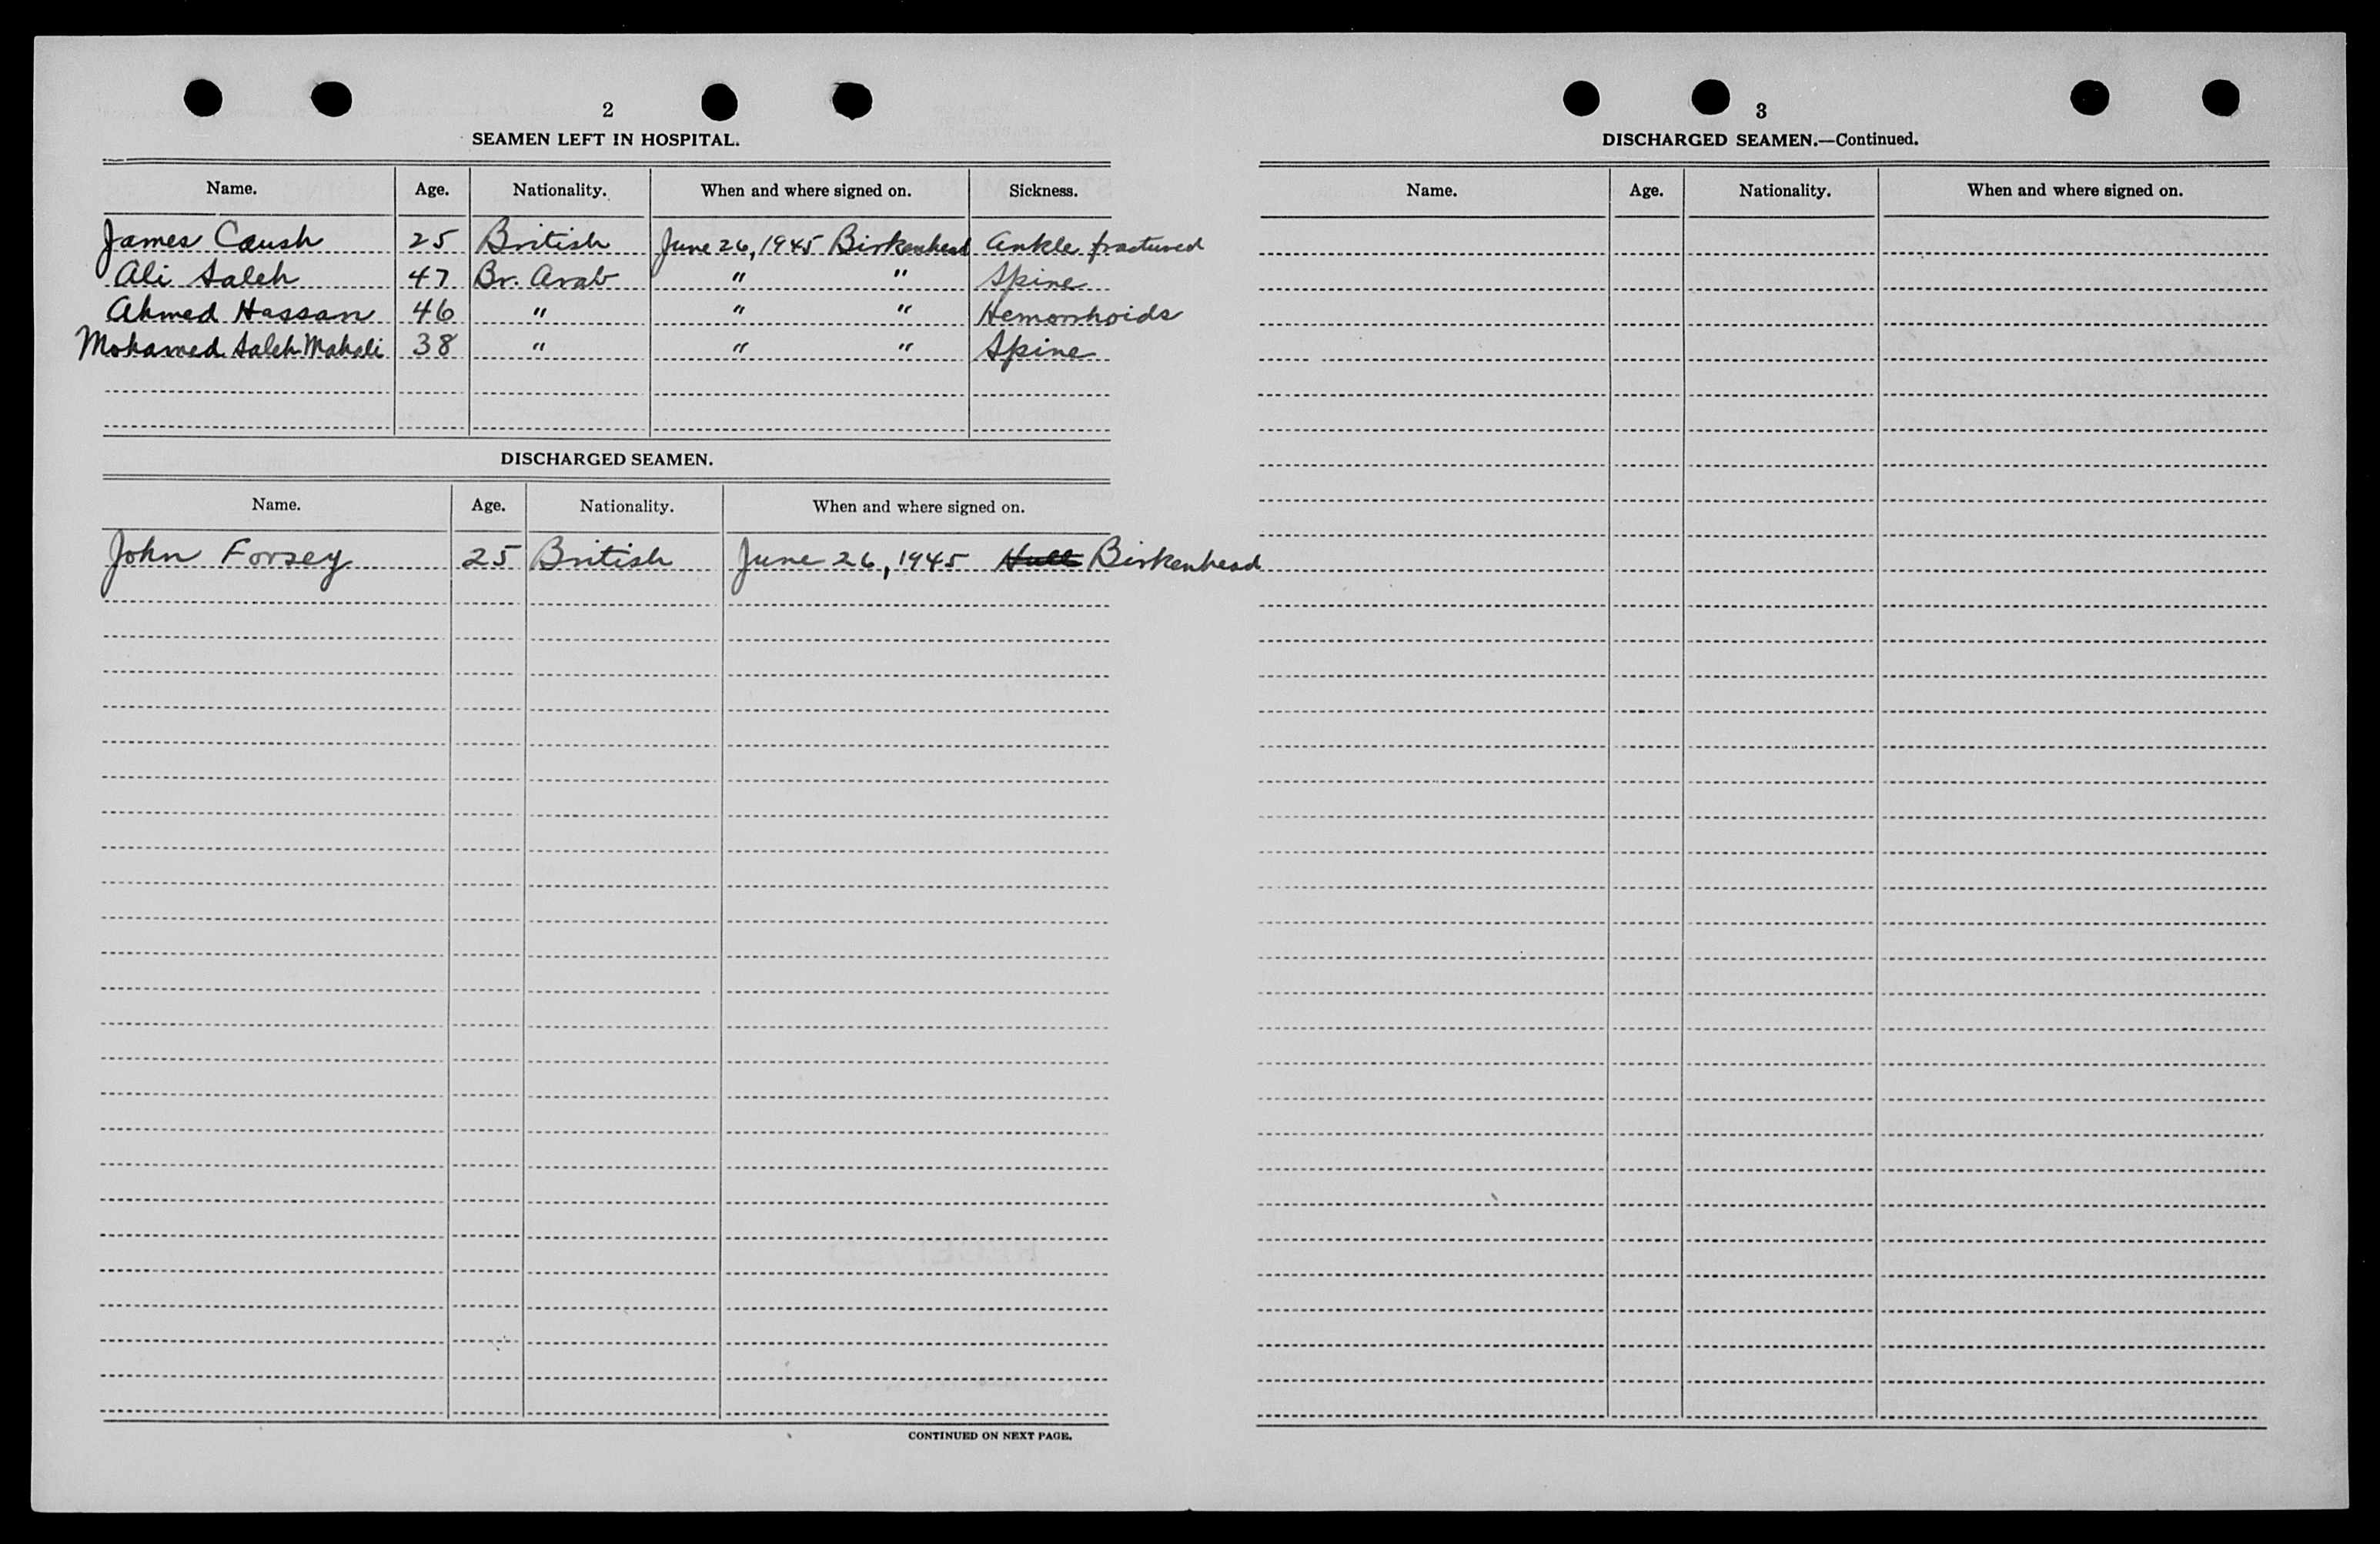 2
SEAMEN LEFT IN HOSPITAL.
Name. Age. Nationality. When and where signed on. Sickness.
James Caush 25 British June 26, 1945 Birkenhead Ankle fractured
Ali Saleh 47 Br. Arab " " Spine
Ahmed Hassan 46 " " " Hemorrhoids
Mohamed Saleh Mahali 38 " " " Spine
DISCHARGED SEAMEN.
Name. Age. Nationality. When and where signed on.
John Forsey 25 British June 26, 1945 Hull Birkenhead
CONTINUED ON NEXT PAGE.
3
DISCHARGED SEAMEN.—Continued.
Name. Age. Nationality. When and where signed on.